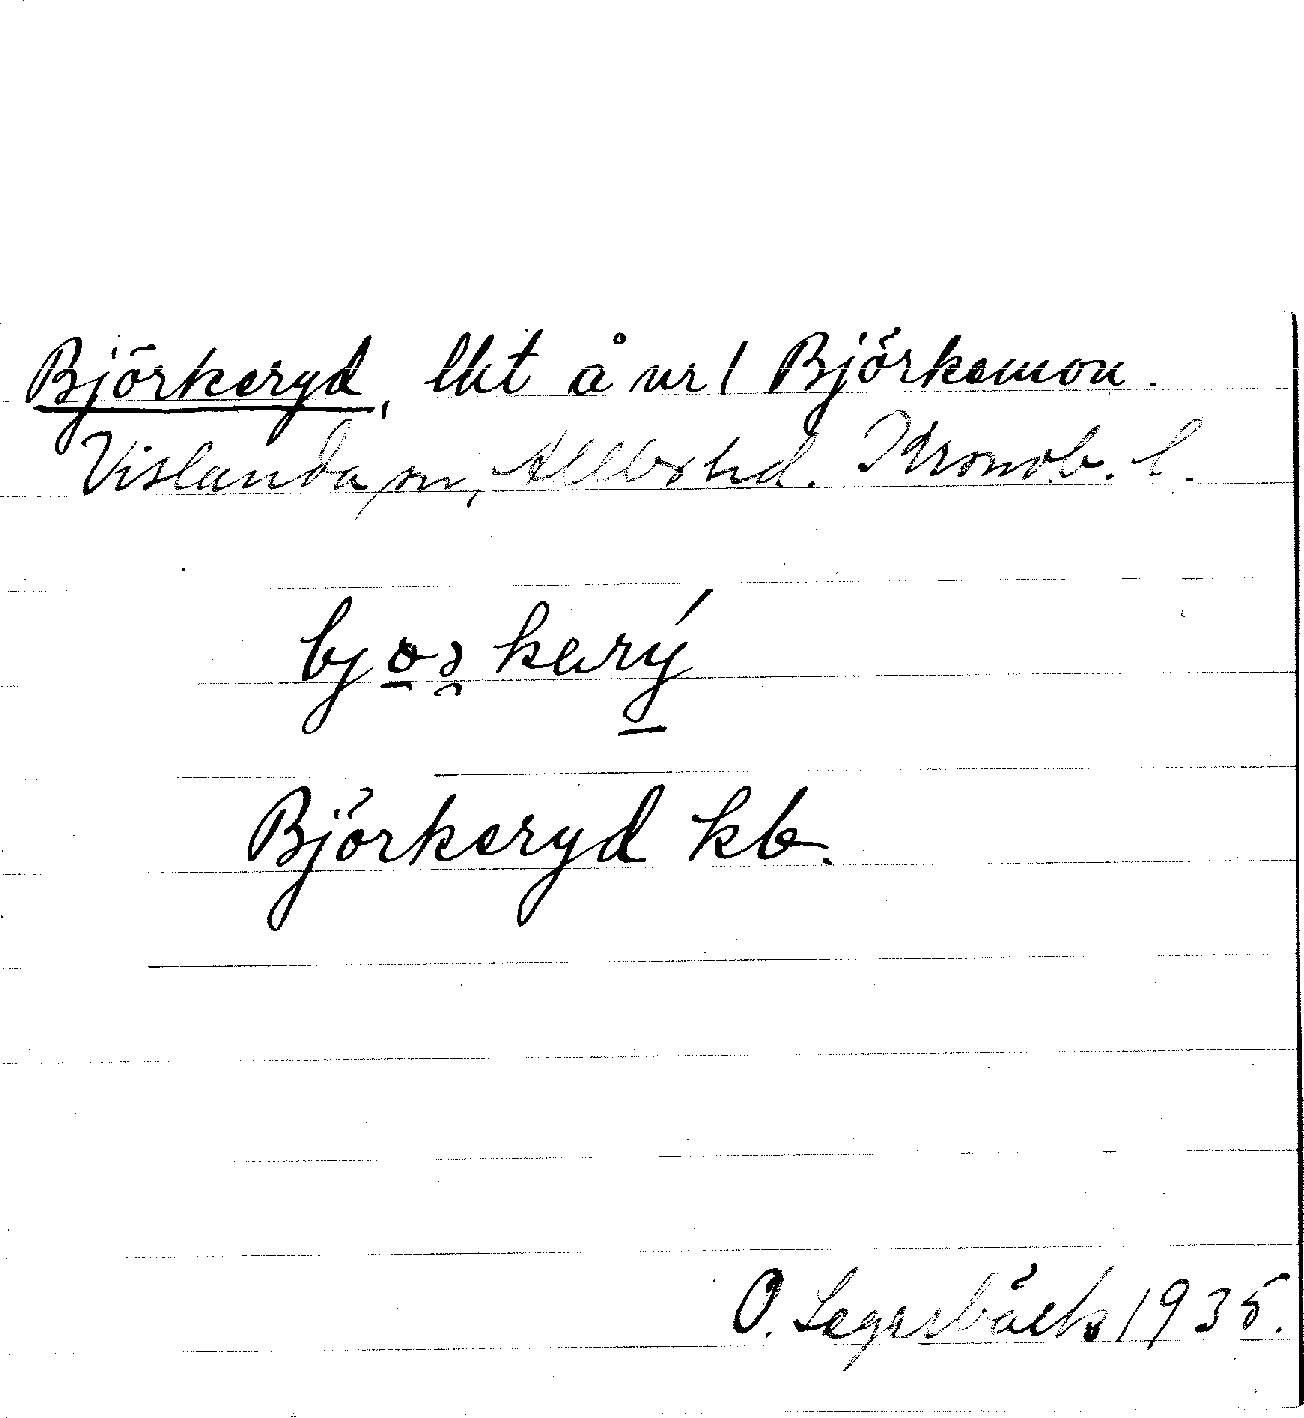 Björkeryd, lht å nr 1 Björkemon.
Vislanda sn, Allbo hd. Kronob. l.
bjöɔkarý
Björkeryd kb.
O. Lagerbäck 1935.